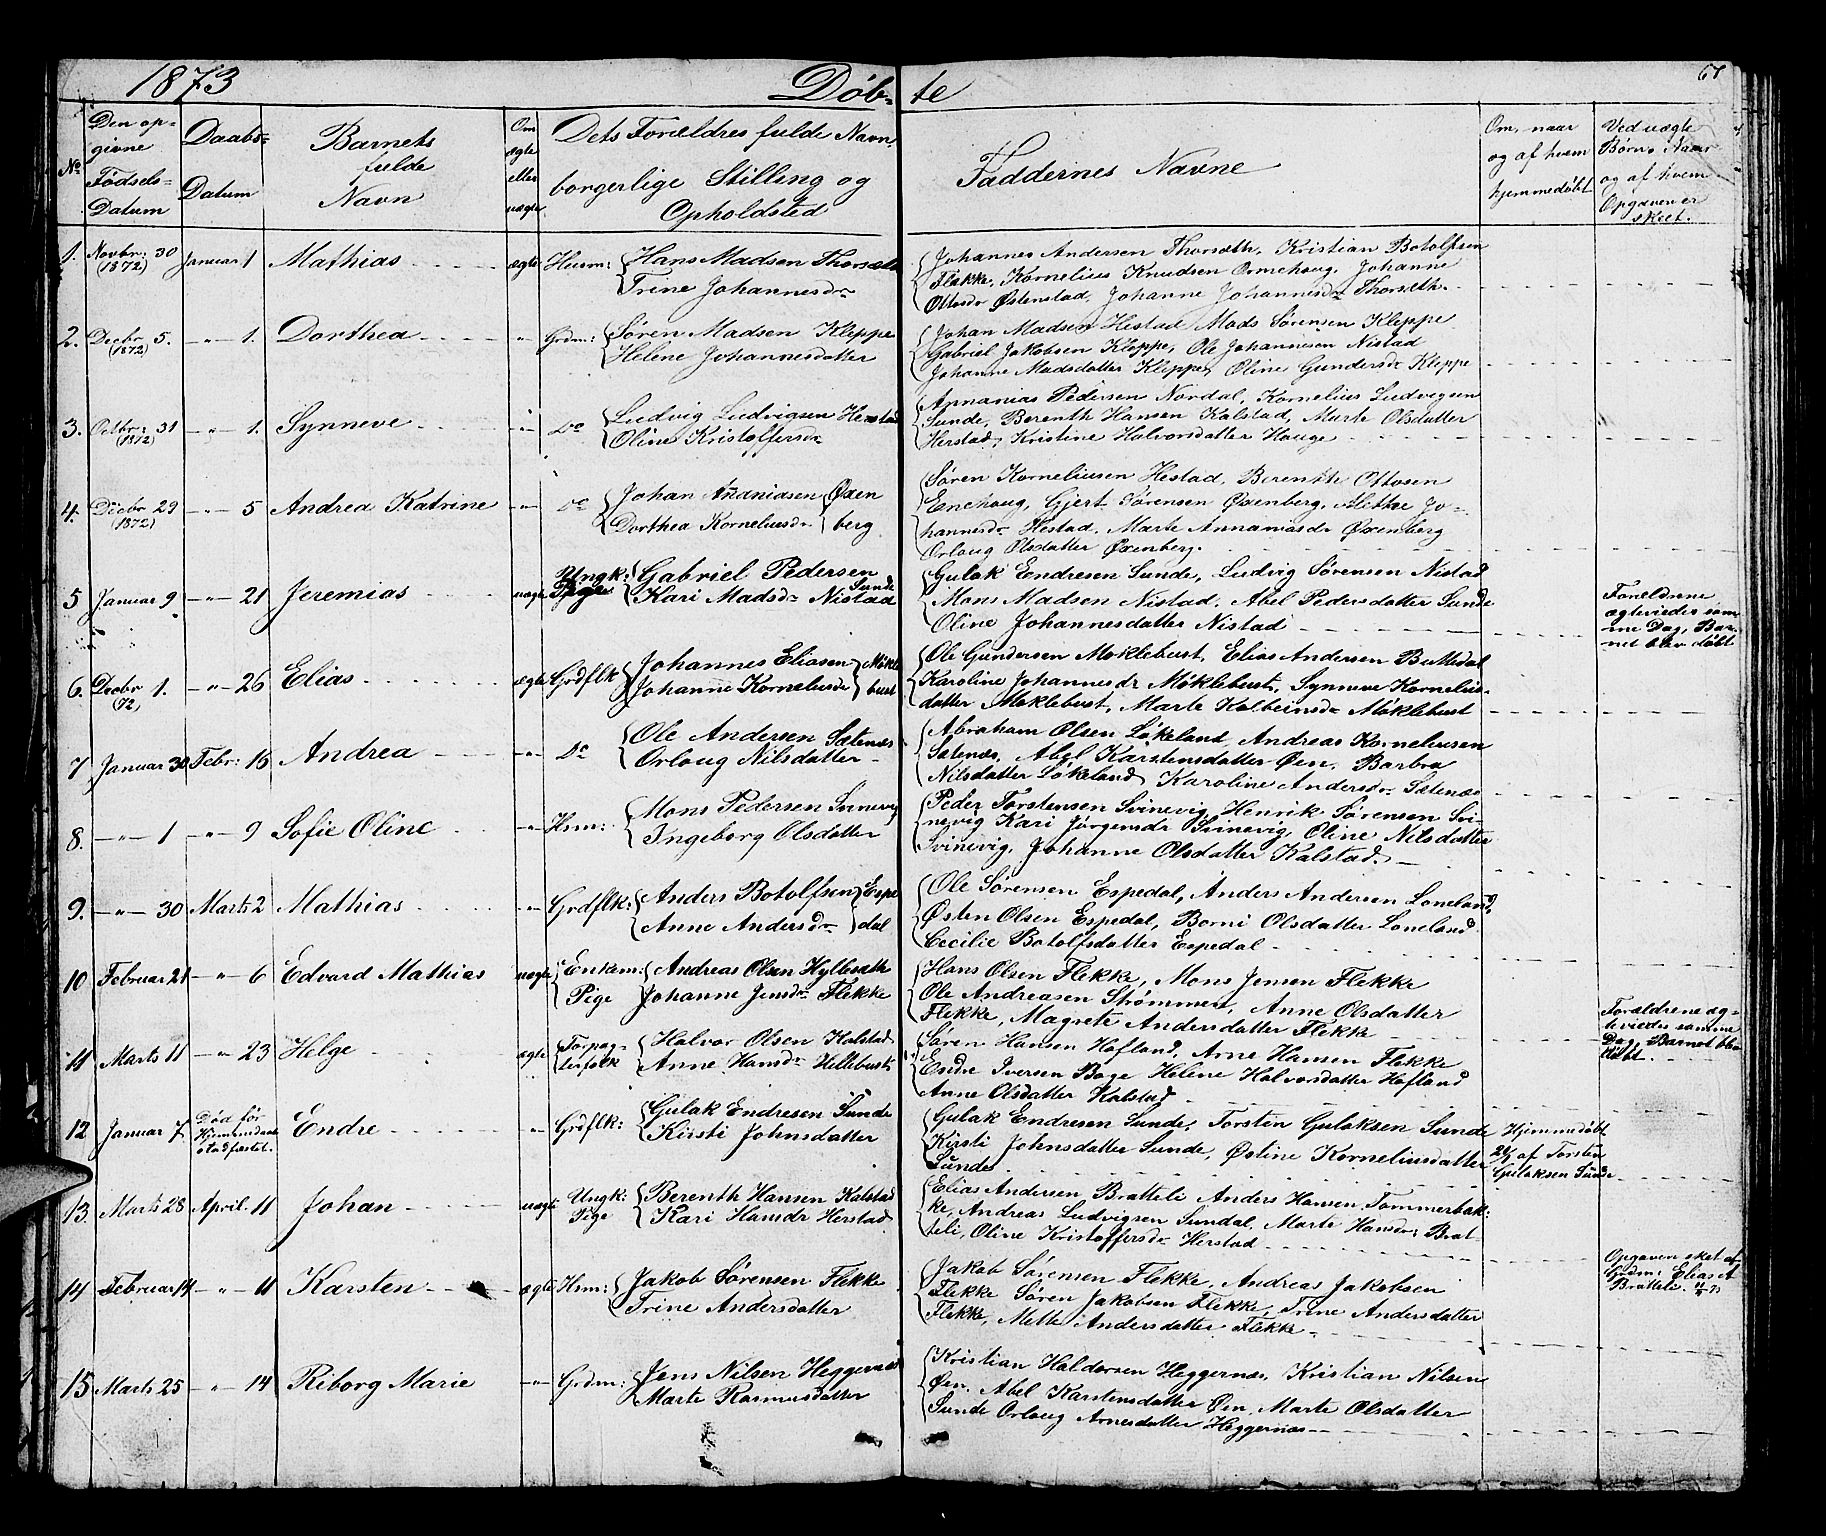 1873 Døb- te 67
No Den opgivne Fødsels-Datum Daabs-Datum Barnets fulde Navn Om ægte eller uægte Dets Forældres fulde Navn, borgerlige Stilling og Opholdsted Faddernes Navne Om, naar og af hvem hjemmedøbt Ved uægte Børn, Naar og af hvem Opgaven er skeet.
1. Novbr: 30 (1872) Januar 1 Mathias ægte Husm: Hans Madsen Thorsæth
Trine Johannesdr
Johannes Andersen Thorsæth, Kristian Botolfsen
Flekke, Kornelius Knudsen Ormehaug, Johanne
Ottosdr Østenstad, Johanne Johannesdr Thorsæth
2. Decbr 5. (1872) -"- 1. Dorthea -"- Grdm: Søren Madsen Kleppe
Helene Johannesdatter
Johan Madsen Hestad Mads Sørensen Kleppe
Gabriel Jakobsen Kleppe, Ole Johannesen Nistad
Johanne Madsdatter Kleppe, Oline Gundersdr Kleppe
3. Octbr: 31 (1872) -"- 1. Synneve -"- Do Ludvig Ludvigsen Herstad
Oline Kristoffersdr
Annanias Pedersen Nordal, Kornelius Ludvigsen
Sunde, Berenth Hansen Kalstad, Marte Olsdatter
Herstad, Kristine Halvorsdatter Hauge
4. Decbr 29 (1872) -"- 5 Andrea Katrine -"- Do Johan Ananiasen Øxen
Dorthea Korneliusdr berg
Søren Korneliusen Hestad, Berenth Ottosen
Ennehaug, Gjert Sørensen Øxenberg, Alethe Jo-
hannesdr Hestad, Marte Annaniasdr Øxenberg
Orloug Olsdatter Øxenberg.
5 Januar 9 -"- 21 Jeremias uægte Ungk: Gabriel Pedersen Sunde
Pige Kari Madsdr Nistad
Gulak Endresen Sunde, Ludvig Sørensen Nistad
Mons Madsen Nistad, Abel Pedersdatter Sunde
Oline Johannesdatter Nistad
Forældrene
ægteviedes sam-
me Dag, Bar-
net blev døbt
6. Decbr 1. (72) -"- 26 Elias ægte Grdflk Johannes Eliasen Møkle
Johanne Korneliusdr bust
Ole Gundersen Møklebust, Elias Andersen Buttedal
Karoline Johannesdr Møklebust, Synneve Kornelius-
datter Møklebust, Marte Kolbeinsdr Møklebust
7 Januar 30 Febr: 16 Andrea -"- Do Ole Andersen Sætenæs
Orloug Nilsdatter
Abraham Olsen Løkeland Andreas Korneliusen
Sætenæs, Abel Karstensdatter Øen, Barbra
Nilsdatter Løkeland, Karoline Andersdr Sætenæs
8. -"- 1 -"- 9 Sofie Oline -"- Hsm: Mons Pedersen Svinevig
Ingeborg Olsdatter
Peder Torstensen Svinevig, Henrik Sørensen Svi-
nevig Kari Jørgensdr Svinevig, Oline Nilsdatter
Svinevig, Johanne Olsdatter Kalstad.
9. -"- 30 Marts 2 Mathias -"- Grdflk: Anders Botolfsen Espe
Anne Andersdr dal
Ole Sørensen Espedal, Anders Andersen Loneland,
Østen Olsen Espedal, Borni Olsdatter Loneland
Cecilie Botolfsdatter Espedal
10 Februar 21 -"- 6 Edvard Mathias uægte Enkem: Andreas Olsen Hyllesæth
Pige Johanne Jensdr Flekke
Hans Olsen Flekke, Mons Jensen Flekke
Ole Andreasen Strømmen, Anne Olsdatter
Flekke, Magrete Andersdatter Flekke
Forældrene æg-
teviedes samme
Dag, Barnet blev
døbt
11 Marts 11 -"- 23 Helge ægte Torpag- Halvor Olsen Kalstad
terfolk Anne Hansdr Hillebust
Søren Hansen Hofland, Arne Hansen Flekke
Endre Iversen Boge Helene Halvorsdatter Hofland
Anne Olsdatter Kalstad
12 Januar 7 Død før Hjemmedaab stadfæstet. Endre -"- Grdflk: Gulak Endresen Sunde
Kirsti Johnsdatter
Gulak Endresen Sunde, Torsten Gulaksen Sunde
Kirsti Johnsdatter Sunde, Østine Korneliusdatter
Sunde
Hjemmedøbt
21/1 af Torsten
Gulaksen Sunde
13. Marts 28 April 11 Johan uægte Ungk: Berenth Hansen Kalstad
Pige Kari Hansdr Herstad
Elias Andersen Bratteli Anders Hansen Tommerbak-
ke, Andreas Ludvigsen Sundal, Marte Hansdr: Brat-
teli, Oline Kristoffersdr Herstad
Opgaven sket af
Grdm: Elias A
Bratteli.
14 Februar 14 -"- 11 Karsten ægte Hsm: Jakob Sørensen Flekke
Trine Andersdatter
Jakob Sørensen Flekke, Andreas Jakobsen
Flekke Søren Jakobsen Flekke, Trine Andersdatter
Flekke, Mette Andersdatter Flekke
15 Marts 25 -"- 14 Riborg Marie -"- Grdm: Jens Nilsen Heggernæs
Marte Rasmusdatter
Kristian Haldorsen Heggernæs, Kristian Nilsen
Øen, Abel Karstensdatter Øen, Marte Olsdatter
Sunde Orloug Arnesdatter Heggernæs